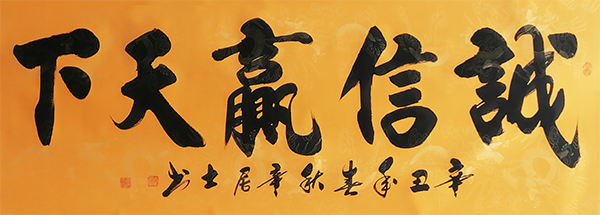 誠信贏天下
辛丑年春秋居士书